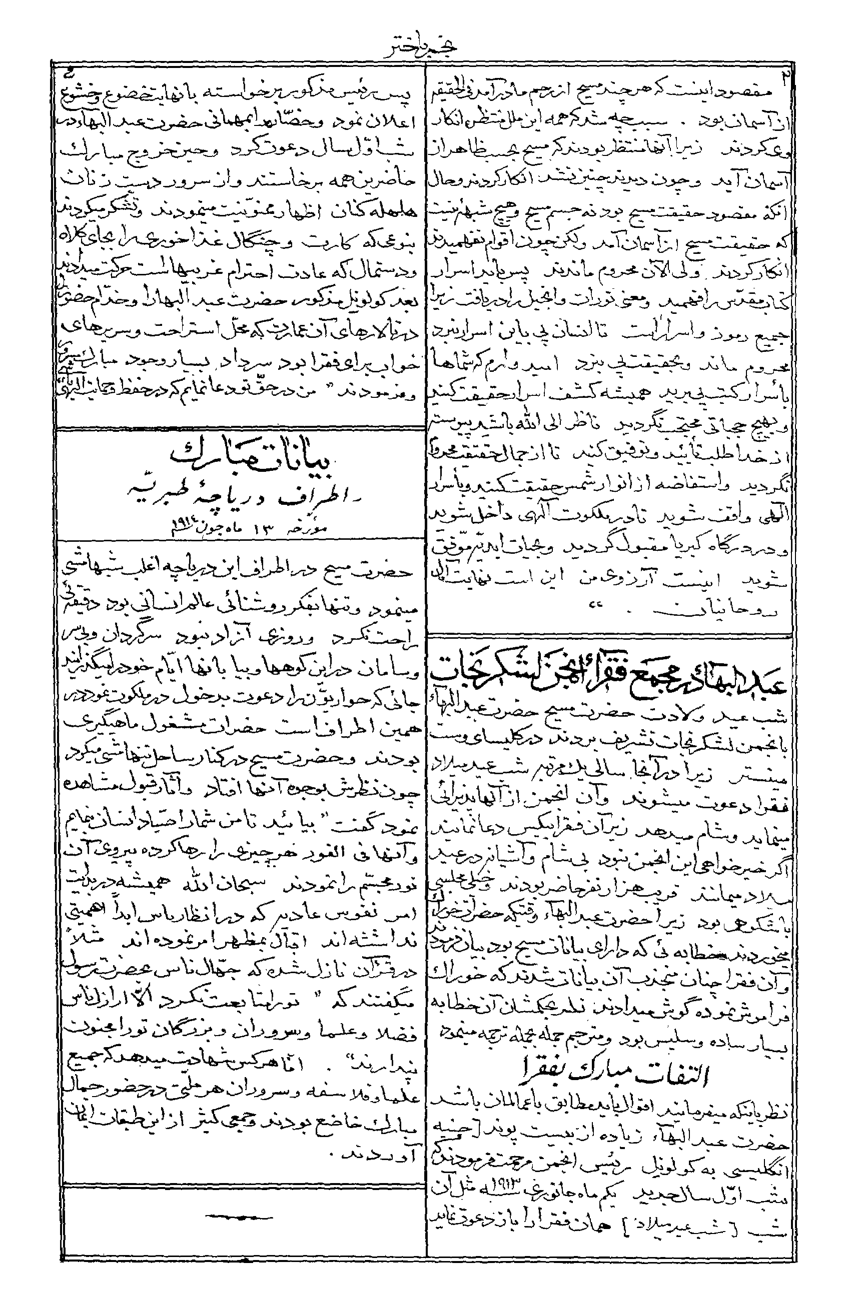 نجم باختر
۲
مقصود اینست که هر چند مسیح از رحم مادر آمد فی الحقیقه
از آسمان بود . سبب چه شد که همه این ملل منتظر انکار
وی کردند زیرا آنها منتظر بودند که مسیح بحسب ظاهر از
آسمان آید و چون دیدند چنین نشد انکار کردند و حال
آنکه مقصود حقیقت مسیح بود نه جسم مسیح و هیچ شبهه نیست
که حقیقت مسیح از آسمان آمد ولکن چون اقوام نفهمیدند
انکار کردند ولی الآن محروم ماندند پس باید اسرار
کتاب مقدس را فهمید ومعنی تورات وانجیل را دریافت زیرا
جمیع رموز و اسرار است تا انسان پی باین اسرار نبرد
محروم ماند و بحقیقت پی نبرد امیدوارم که شماها
باسرار کتب پی برید همیشه کشف اسرار حقیقت کنید
و بهیچ حجباتی محتجب نگردید ناظر الی الله باشید پیوسته
از خدا طلب تأیید و توفیق کنید تا از جمال حقیقت محروم
نگردید واستفاضه از انوار شمس حقیقت کنید و باسرار
الهی واقف شوید تا در ملکوت الهی داخل شوید
و در درگاه کبریا مقبول گردید و بحیات ابدیّه موفّق
شوید اینست آرزوی من این است نهایت آمال
روحانیان . "
عبد البهاء در مجمع فقراء انجمن لشکر نجات
شب عید ولادت حضرت مسیح حضرت عبد البهاء
بانجمن لشکر نجات تشریف بردند در کلیسای وست
مینستر زیرا در آنجا سالی یک مرتبه شب عید میلاد
فقرا دعوت میشوند وآن انجمن از آنها پذیرائی
مینماید وشام میدهد زیرا آن فقرا بیکس دعا نمایند
اگر خیر خواهی این انجمن نبود بی شام و آشیانه در عید
میلاد میمانند قریب هزار نفر حاضر بودند و خیلی مجلسی
باشکوهی بود زیرا حضرت عبد البهاء وقتیکه حضرات خوراک
میخوردند خطابه ئی که دارای بیانات مسیح بود بیان فرمودند
وآن فقرا چنان منجذب آن بیانات شدند که خوراک
فراموش نموده گوش میدادند آن خطابه
بسیار ساده وسلیس بود ومترجم جمله بجمله ترجمه مینمود
التفات مبارک بفقرا
نظر باینکه میفرمایند اقوال باید مطابق باعمالمان باشد
حضرت عبد البهاء زیاده از بیست پوند [جنیه
انگلیسی] به کولونیل رئیس انجمن مرحمت فرمودند که
شب اوّل سال جدید یکم ماه جانوری سنه ۱۹۱۳ مثل آن
شب [شب عید میلاد] همان فقرا را باز دعوت نماید
پس رئیس مذکور برخواسته با نهایت خضوع و خشوع
اعلان نمود بمهمانی حضرت عبد البهاء در
شب اوّل سال دعوت کرد وحین خروج مبارک
حاضرین همه برخاستند و از سرور دست زنان
هلهله کنان اظهار ممنونیّت مینمودند و تشکر میکردند
بنوعی که کارت و چنگال غذا خوری را بجای کلاه
و دستمال که عادت احترام غربیهاست حرکت میدادند
بعد کولونل مذکور، حضرت عبد البهارا وخدّام حضور را
در تالارهای آن عمارت که محلّ استراحت و سریرهای
خواب برای فقرا بود سر داد بسیار وجود مبارک مسرور
وفرمودند " من در حقّ تو دعا نمایم که در حفظ و حمایت الهی
بیانات مبارک
اطراف دریاچهٔ طبریّه
مورّخه ۱۳ ماه جون ۱۹۱۴م
حضرت مسیح در اطراف این دریاچه اغلب شبها شی
مینمود وتنها بفکر روشنائی عالم انسانی بود دقیقه ئی
راحت نکرد و روزی آزاد نبود سرگردان وبی سر
وسامان در این کوهها وبیابانها ایّام خود را میگذرانید
جائی که حواریّون را دعوت بدخول در ملکوت نمود در
همین اطراف است حضرات مشغول ماهیگیری
بودند وحضرت مسیح در کنار ساحل تنها مشی میکرد
چون نظرش بوجوه آنها افتاد وآثار قبول مشاهده
نمود گفت " بیائید تا من شمارا صیّاد انسان نمایم
وآنها فی الفور هر چیزی را رها کرده پیروی آن
نور مجسّم را نمودند سبحان الله همیشه در بدایت
امر نفوس عادیه که در انظار ناس ابداً اهمیّتی
نداشته اند اقبال بمظهر امر نموده اند مثلاً
در قرآن نازل شده که جهّال ناس بحضرت رسول
میگفتند که " تو را متابعت نکرد الّا اراذل ناس
فضلا وعلما وسروران و بزرگان تو را مجنون
پندارند" . امّا هر کس شهادت میدهد که جمیع
علما و فلاسفه وسروران هر ملّتی در حضور جمال
مبارک خاضع بودند وجمعی کثیر از این طبقات ایمان
آوردند .